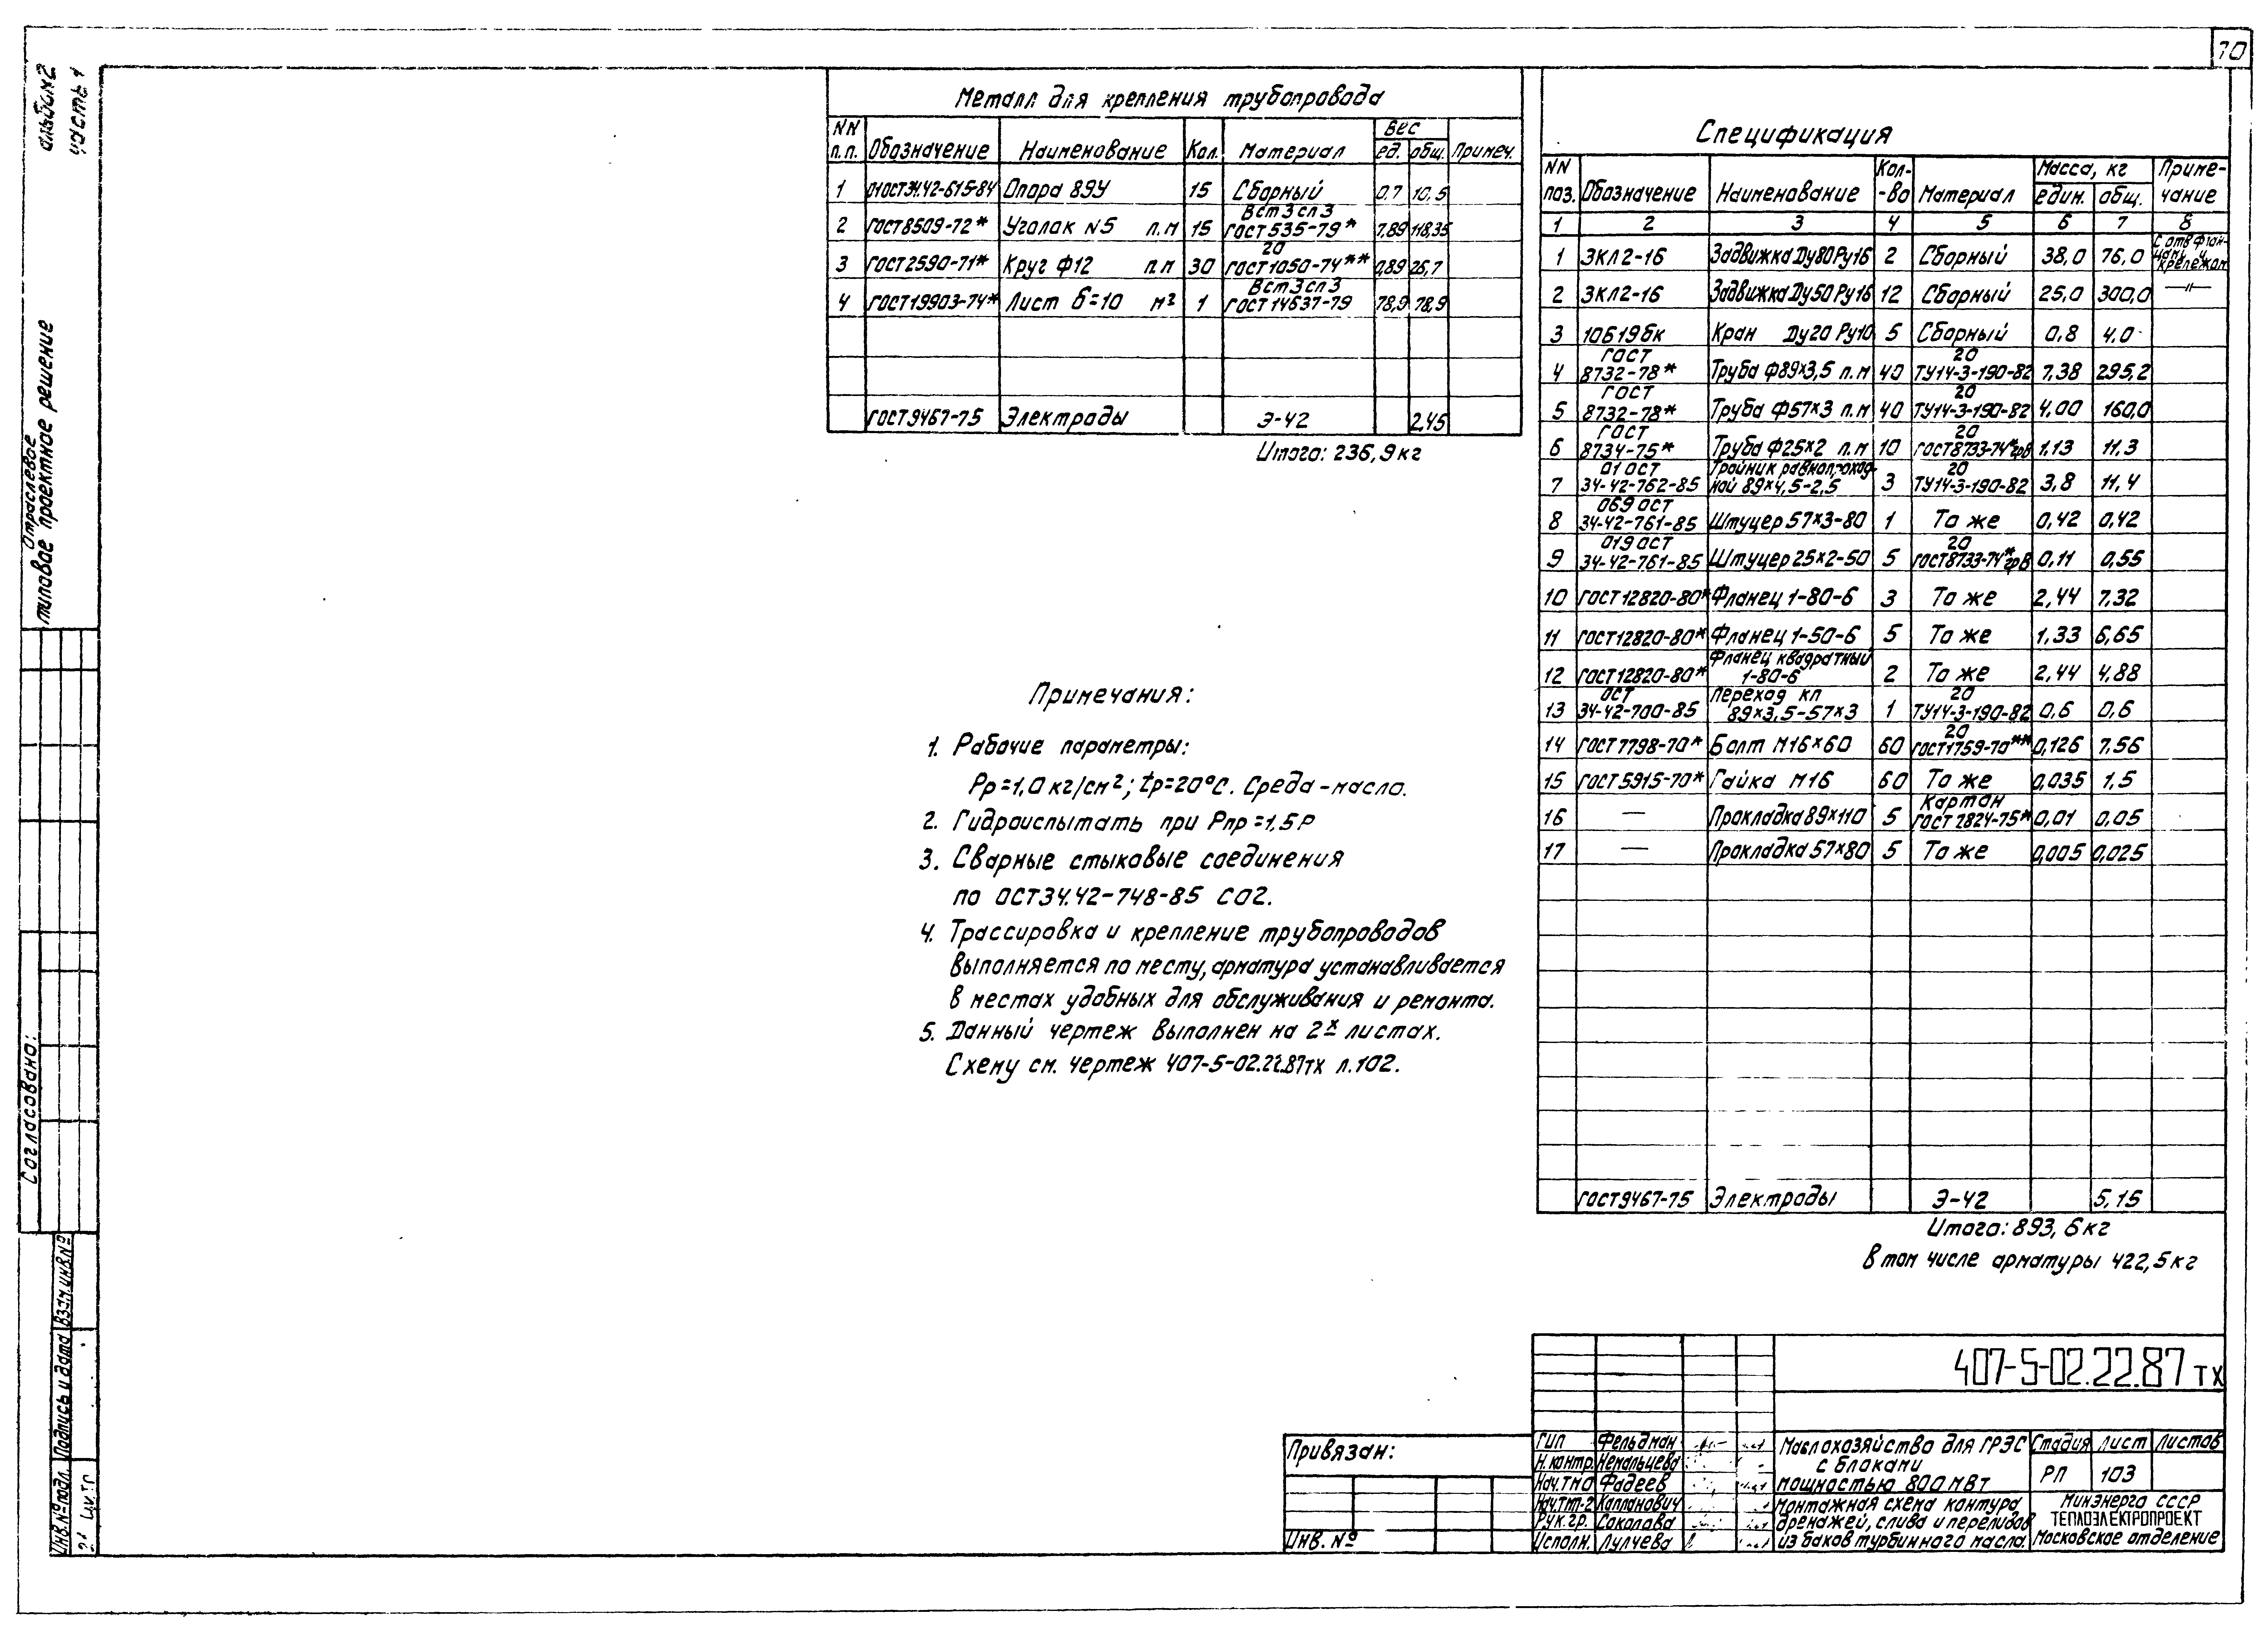 70
альбом 2
часть 1
Отраслевое
типовое проектное решение
Согласовано:
Взам.инв.№
Подпись и дата
Инв.№ подл.
Металл для крепления трубопровода
NN п.п. Обозначение Наименование Кол. Материал Вес ед. общ. Примеч.
1 01ОСТ34.42-615-84 Опора 89У 15 Сборный 0,7 10,5
2 ГОСТ8509-72* Уголок N5 п.м 15 Вст3сп3 ГОСТ535-79* 7,89 118,35
3 ГОСТ2590-71* Круг Ф12 п.м 30 20 ГОСТ1050-74** 0,89 26,7
4 ГОСТ19903-74* Лист б=10 м² 1 Вст3сп3 ГОСТ14637-79 78,9 78,9
ГОСТ9467-75 Электроды Э-42 2,45
Итого: 236,9кг
Примечания:
1. Рабочие параметры:
Рр=1,0кг/см²; tр=20°С. Среда-масло.
2. Гидроиспытать при Рпр=1,5Р
3. Сварные стыковые соединения
по ОСТ34.42-748-85 С02.
4. Трассировка и крепление трубопроводов
выполняется по месту, арматура устанавливается
в местах удобных для обслуживания и ремонта.
5. Данный чертеж выполнен на 2х листах.
Схему см. чертеж 407-5-02.22.87тх л.102.
Спецификация
NN поз. Обозначение Наименование Кол--во Материал Масса, кг един. общ. Приме-чание
1 2 3 4 5 6 7 8
1 ЗКЛ2-16 Задвижка Ду80Ру16 2 Сборный 38,0 76,0 С отв.флан-цами и крепежом
2 ЗКЛ2-16 Задвижка Ду50Ру16 12 Сборный 25,0 300,0 —"—
3 10Б19бк Кран Ду20 Ру10 5 Сборный 0,8 4,0
4 ГОСТ 8732-78* Труба Ф89×3,5 п.м 40 20 ТУ14-3-190-82 7,38 295,2
5 ГОСТ 8732-78* Труба Ф57×3 п.м 40 20 ТУ14-3-190-82 4,00 160,0
6 ГОСТ 8734-75* Труба Ф25×2 п.м 10 20 ГОСТ8733-74*грВ 1,13 11,3
7 01 ОСТ 34-42-762-85 Тройник равнопроход-ной 89×4,5-2,5 3 20 ТУ14-3-190-82 3,8 11,4
8 069 ОСТ 34-42-761-85 Штуцер 57×3-80 1 То же 0,42 0,42
9 019 ОСТ 34-42-761-85 Штуцер 25×2-50 5 20 ГОСТ8733-74*грВ 0,11 0,55
10 ГОСТ12820-80* Фланец 1-80-6 3 То же 2,44 7,32
11 ГОСТ12820-80* Фланец 1-50-6 5 То же 1,33 6,65
12 ГОСТ12820-80* Фланец квадратный 1-80-6 2 То же 2,44 4,88
13 ОСТ 34-42-700-85 Переход кп 89×3,5-57×3 1 20 ТУ14-3-190-82 0,6 0,6
14 ГОСТ7798-70* Болт М16×60 60 20 ГОСТ1759-70** 0,126 7,56
15 ГОСТ5915-70* Гайка М16 60 То же 0,035 1,5
16 — Прокладка 89×110 5 Картон ГОСТ 2824-75* 0,01 0,05
17 — Прокладка 57×80 5 То же 0,005 0,025
ГОСТ9467-75 Электроды Э-42 5,15
Итого: 893,6кг
В том числе арматуры 422,5кг
407-5-02.22.87 тх
Привязан:
Инв. №
ГИП Фельдман
Н.контр. Немальцева
Нач.ТМО Фадеев
Нач.ТМТ-2 Капланович
Рук.гр. Соколова
Исполн. Лулчева
Маслохозяйство для ГРЭС
с блоками
мощностью 800 МВт
Стадия Лист Листов
РП 103
Монтажная схема контура
дренажей, слива и переливов
из баков турбинного масла.
Минэнерго СССР
ТЕПЛОЭЛЕКТРОПРОЕКТ
Московское отделение